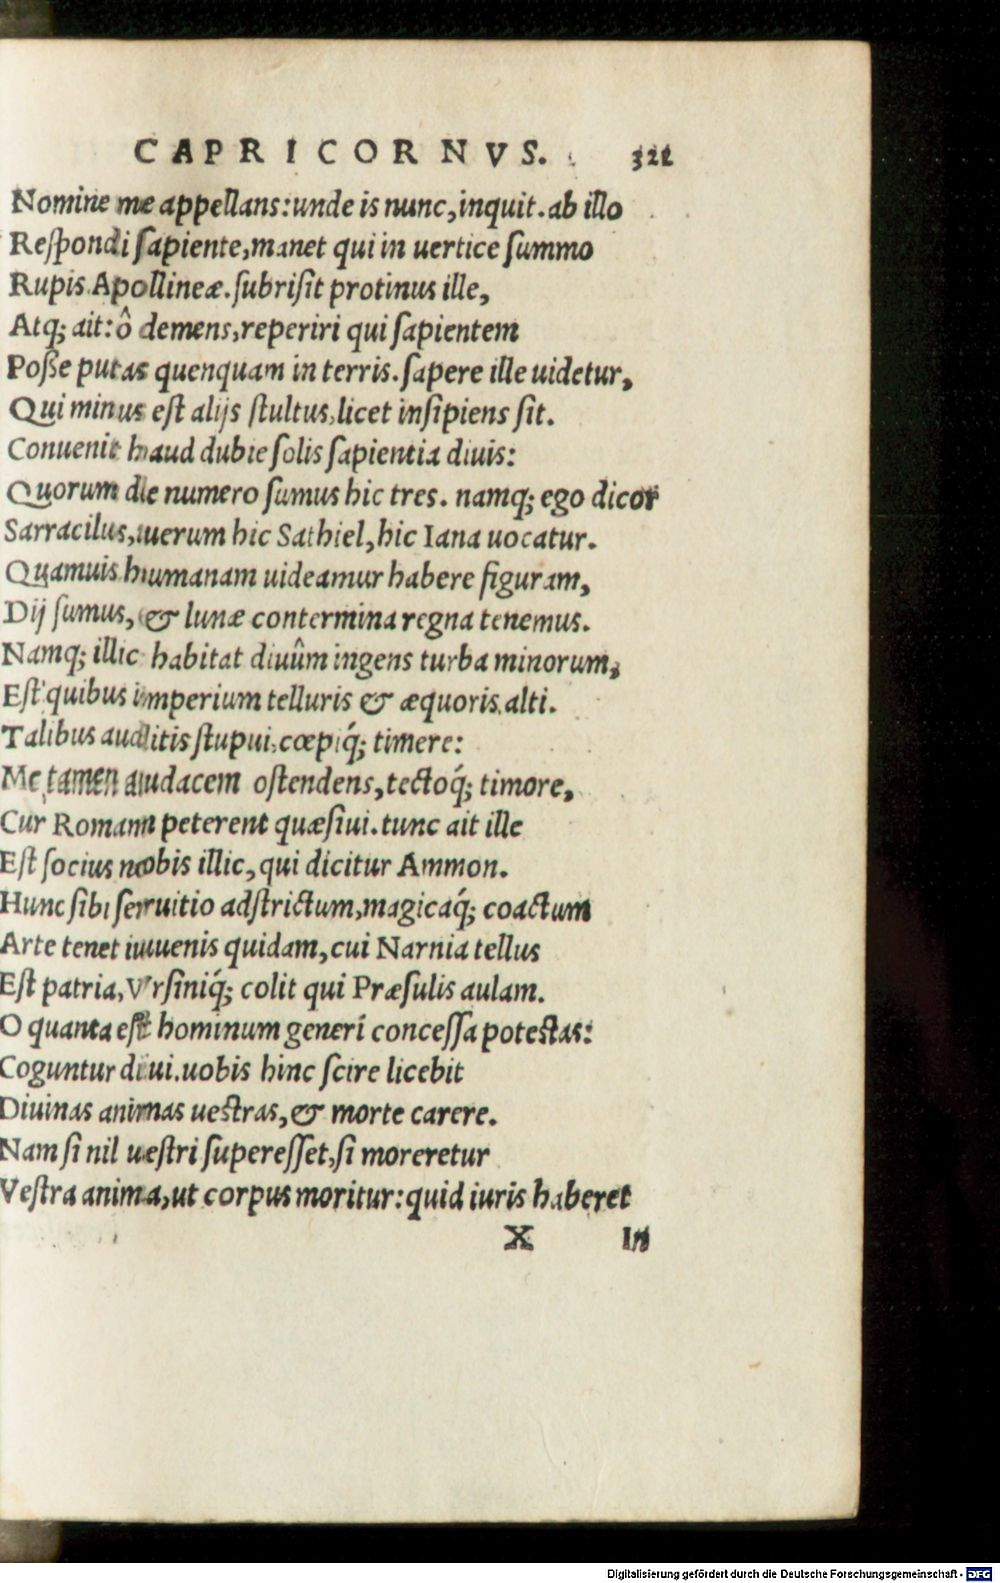 CAPRICORNVS. 321
Nomine me appellans: unde is nunc, inquit. ab illo
Respondi sapiente, manet qui in uertice summo
Rupis Apollineæ. subrisit protinus ille,
Atq; ait: ô demens, reperiri qui sapientem
Posse putas quenquam in terris. sapere ille uidetur,
Qui minus est alijs stultus, licet insipiens sit.
Conuenit haud dubie solis sapientia diuis:
Quorum de numero sumus hic tres. namq; ego dicor
Sarracilus, uerum hic Sathiel, hic Iana uocatur.
Quamuis humanam uideamur habere figuram,
Dij sumus, & lunæ contermina regna tenemus.
Namq; illic habitat diuûm ingens turba minorum,
Est quibus imperium telluris & æquoris alti.
Talibus auditis stupui, cœpiq́; timere:
Me tamen audacem ostendens, tectoq́; timore,
Cur Romam peterent quæsiui. tunc ait ille
Est socius nobis illic, qui dicitur Ammon.
Hunc sibi seruitio adstrictum, magicaq́; coactum
Arte tenet iuuenis quidam, cui Narnia tellus
Est patria, Vrsiniq́; colit qui Præsulis aulam.
O quanta est hominum generi concessa potestas:
Coguntur diui. uobis hinc scire licebit
Diuinas animas uestras, & morte carere.
Nam si nil uestri superesset, si moreretur
Vestra anima, ut corpus moritur: quid iuris haberet
X In
Digitalisierung gefördert durch die Deutsche Forschungsgemeinschaft - DFG